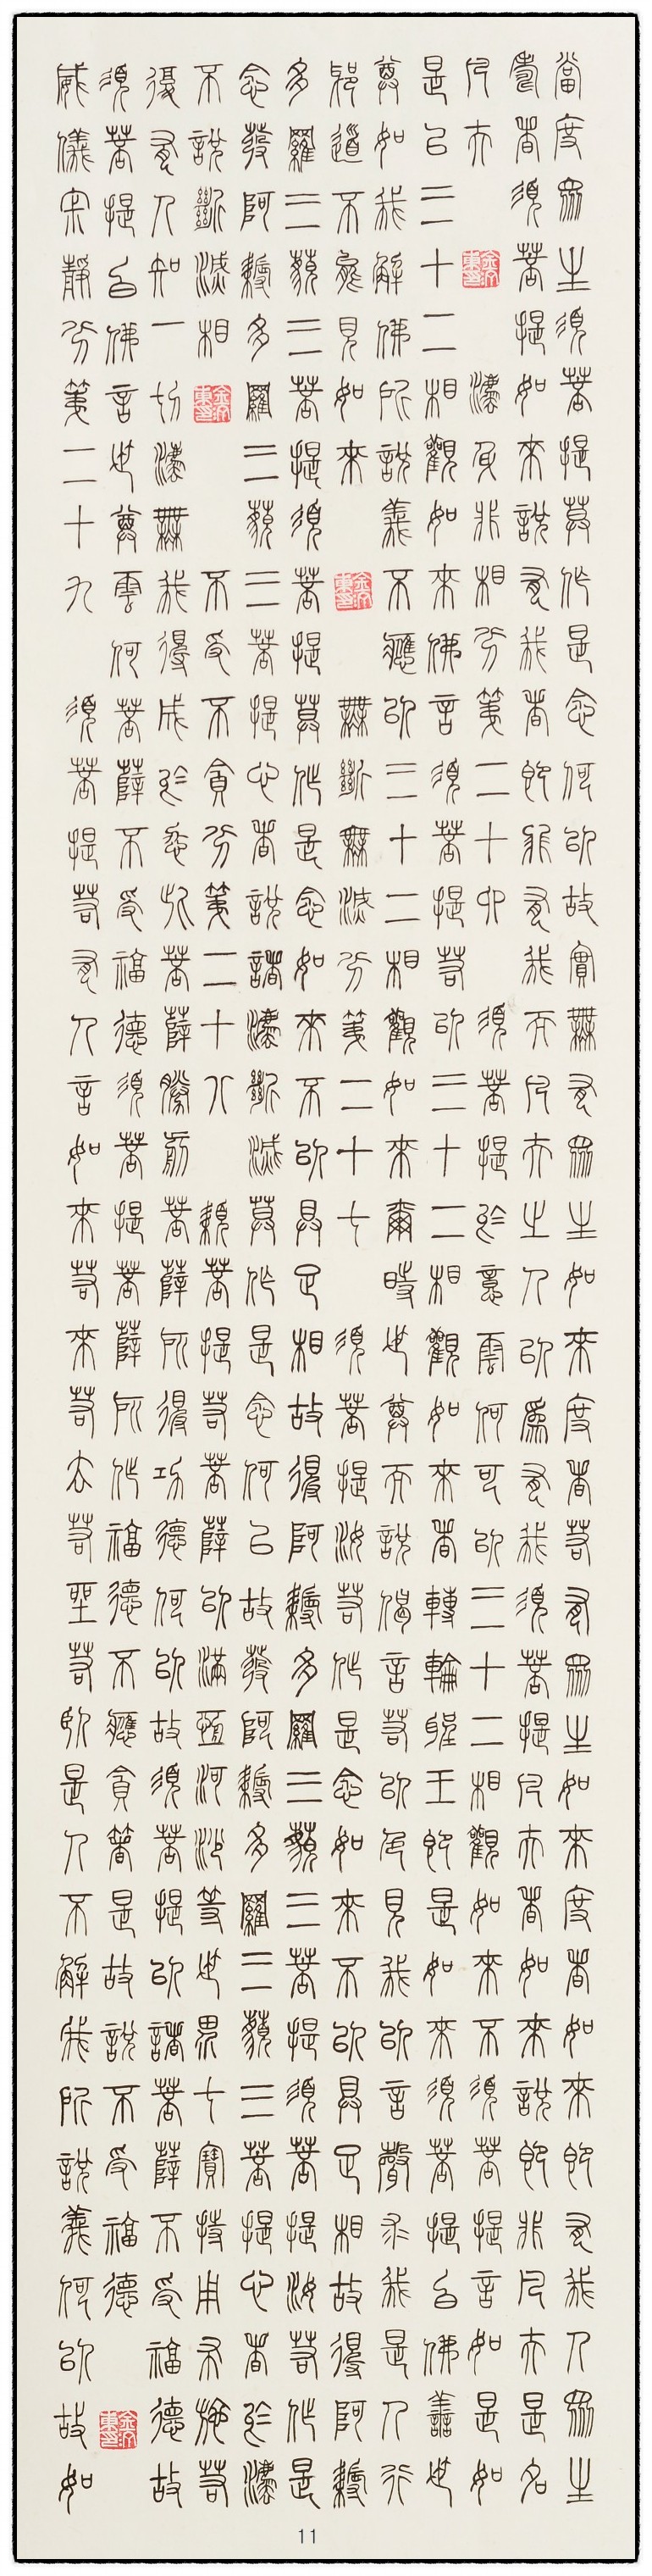 當度眾生須菩提莫作是念何以故實無有眾生如來度者若有眾生如來度者如來即有我人眾生
壽者須菩提如來說有我者即非有我而凡夫之人以為有我須菩提凡夫者如來說即非凡夫是名
凡夫 法身非相分第二十六 須菩提於意雲何可以三十二相觀如來不須菩提言如是如
是以三十二相觀如來佛言須菩提若以三十二相觀如來者轉輪聖王即是如來須菩提白佛言世
尊如我解佛所說義不應以三十二相觀如來爾時世尊而說偈言若以色見我以音聲求我是人行
邪道不能見如來 無斷無滅分第二十七 須菩提汝若作是念如來不以具足相故得阿耨
多羅三藐三菩提須菩提莫作是念如來不以具足相故得阿耨多羅三藐三菩提須菩提汝若作是
念發阿耨多羅三藐三菩提心者說諸法斷滅莫作是念何以故發阿耨多羅三藐三菩提心者於法
不說斷滅相 不受不貪分第二十八 須菩提若菩薩以滿恆河沙等世界七寶持用布施若
復有人知一切法無我得成於忍此菩薩勝前菩薩所得功德何以故須菩提以諸菩薩不受福德故
須菩提白佛言世尊雲何菩薩不受福德須菩提菩薩所作福德不應貪著是故說不受福德
威儀寂靜分第二十九 須菩提若有人言如來若來若去若坐若臥是人不解我所說義何以故如
11